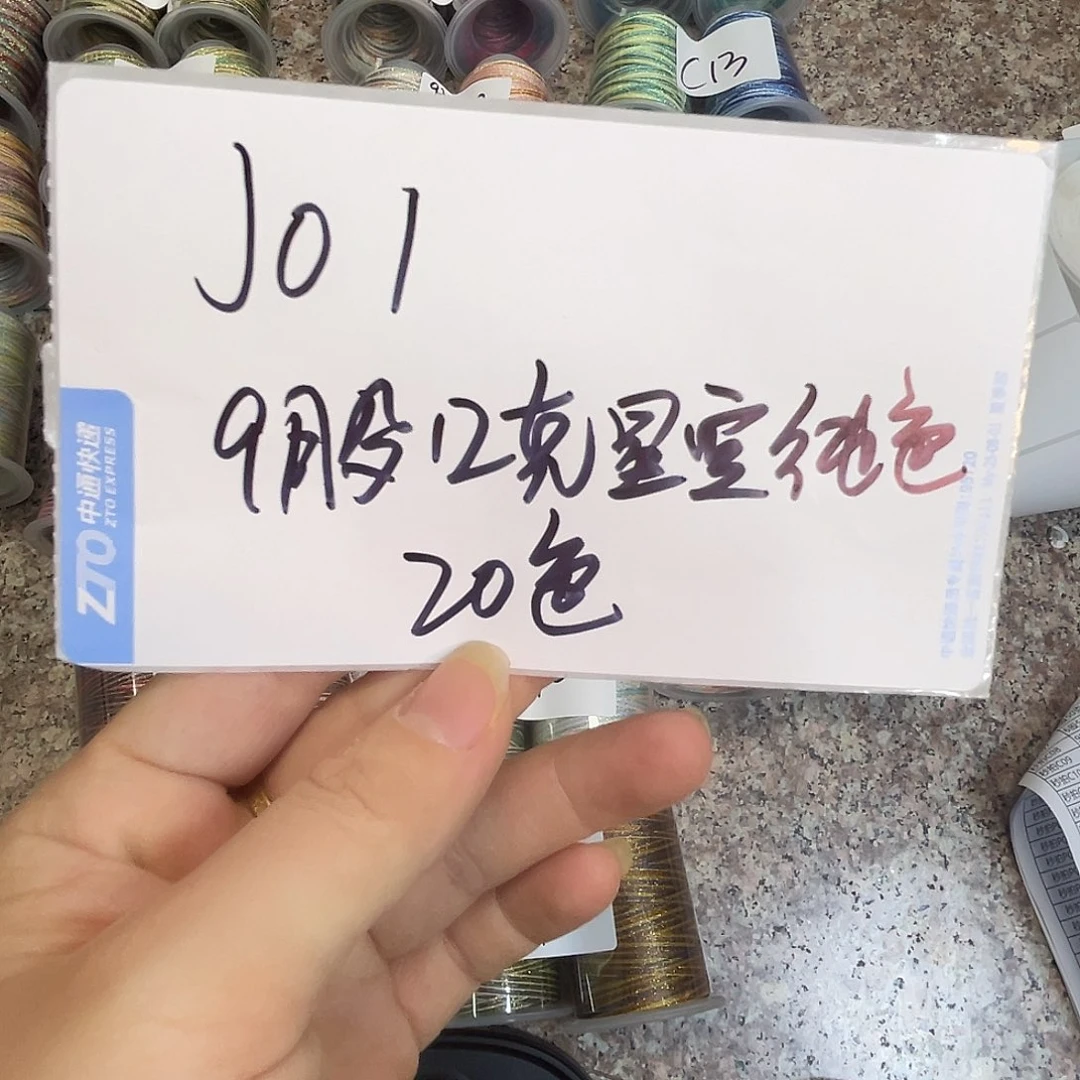 C13
J01
9股12克星空纯色
20色
ZTO 中通快递
ZTO EXPRESS